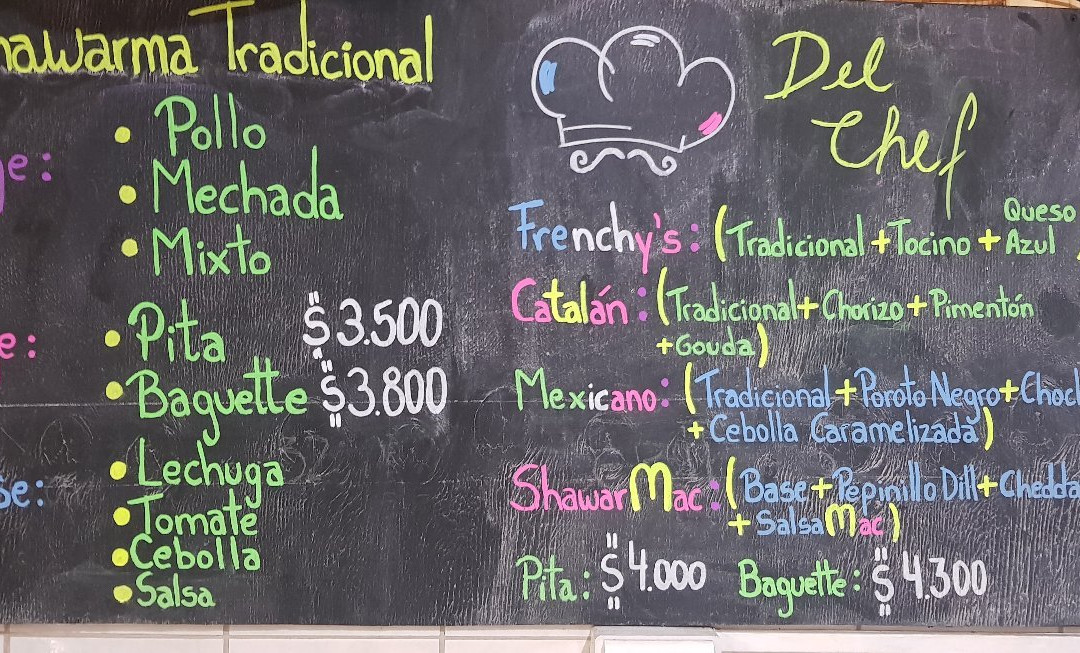 hawarma Tradicional
e:
• Pollo
• Mechada
• Mixto
e:
• Pita $3.500
• Baguette $3.800
se:
• Lechuga
• Tomate
• Cebolla
• Salsa
Del
Chef
Frenchy's: (Tradicional + Tocino + Queso Azul)
Catalán: (Tradicional + Chorizo + Pimentón
+ Gouda)
Mexicano: (Tradicional + Poroto Negro + Chocl
+ Cebolla Caramelizada)
ShawarMac: (Base + Pepinillo Dill + Chedda
+ Salsa Mac)
Pita: $4.000 Baguette: $4.300